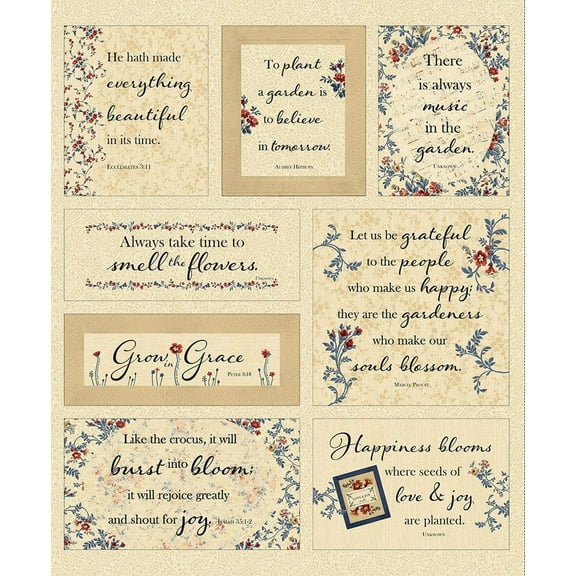 He hath made
everything
beautiful
in its time.
Ecclesiates 3:11
To plant
a garden is
to believe
in tomorrow.
Audrey Hepburn
There
is always
music
in the
garden.
Unknown
Always take time to
smell the flowers.
Unknown
Let us be grateful
to the people
who make us happy;
they are the gardeners
who make our
souls blossom.
Marcel Proust
Grow in Grace
Peter 3:18
Like the crocus, it will
burst into bloom;
it will rejoice greatly
and shout for joy. Isaiah 35:1-2
Happiness blooms
where seeds of
love & joy
are planted.
Unknown